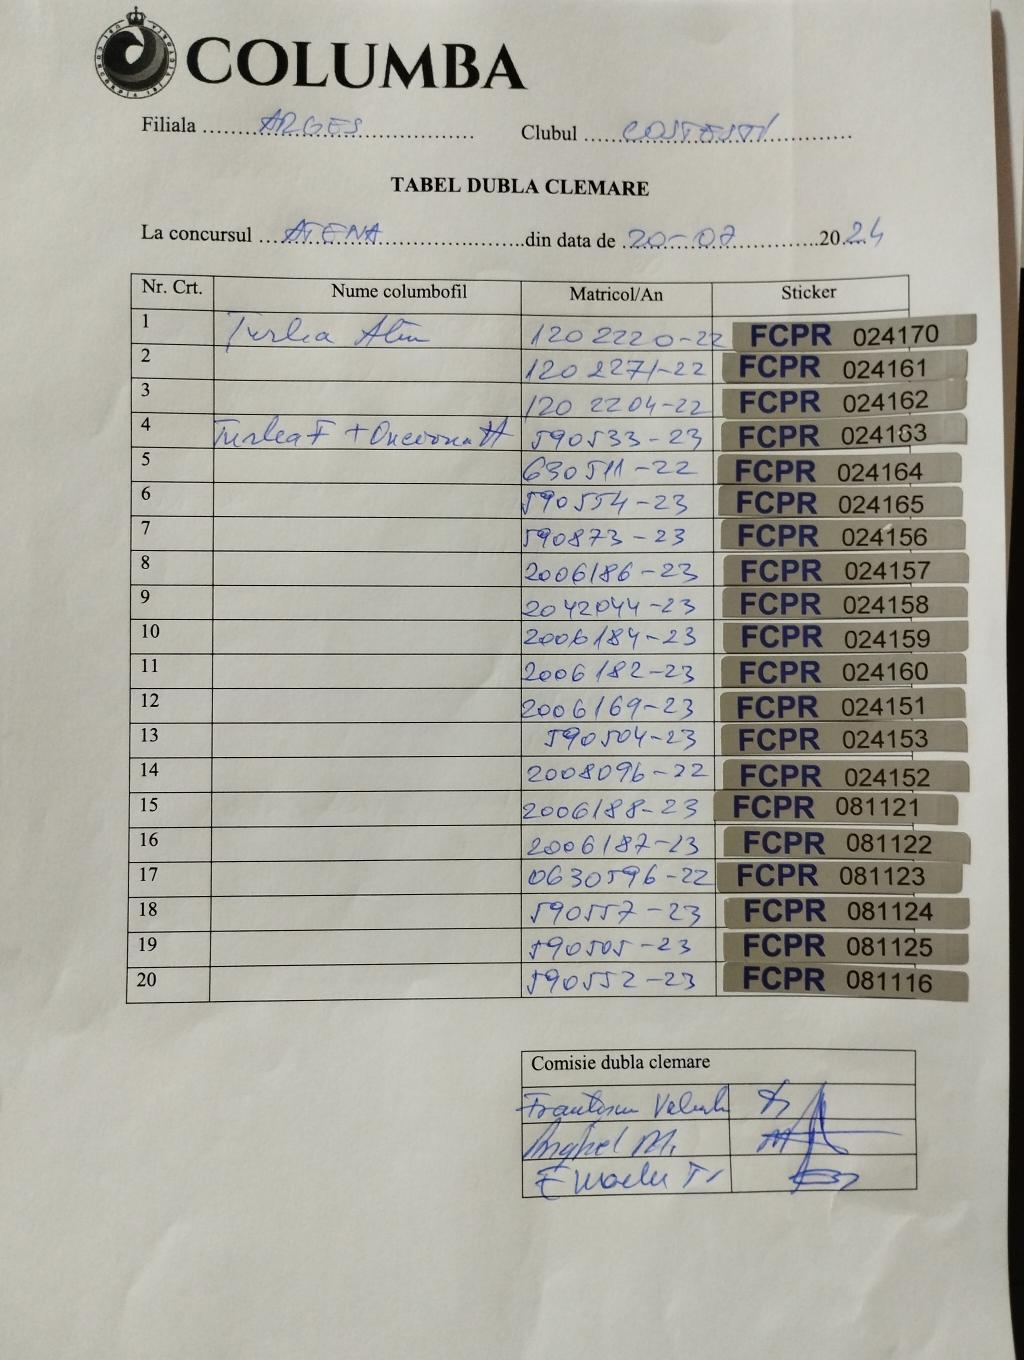 COLUMBA
Filiala ARGES Clubul COSTESTI
TABEL DUBLA CLEMARE
La concursul ATENA din data de 20-07 2024
Nr. Crt. Nume columbofil Matricol/An Sticker
1 Turlea Alin 1202220-22 FCPR 024170
2 1202271-22 FCPR 024161
3 1202204-22 FCPR 024162
4 Turlea F + 590533-23 FCPR 024163
5 630511-22 FCPR 024164
6 590554-23 FCPR 024165
7 590873-23 FCPR 024156
8 2006186-23 FCPR 024157
9 2042044-23 FCPR 024158
10 2006184-23 FCPR 024159
11 2006182-23 FCPR 024160
12 2006169-23 FCPR 024151
13 590504-23 FCPR 024153
14 2008096-22 FCPR 024152
15 2006188-23 FCPR 081121
16 2006187-23 FCPR 081122
17 0630596-22 FCPR 081123
18 590557-23 FCPR 081124
19 590505-23 FCPR 081125
20 590552-23 FCPR 081116
Comisie dubla clemare
Anghel M.